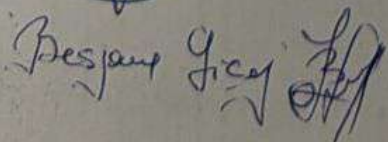 Besjana Gicaj